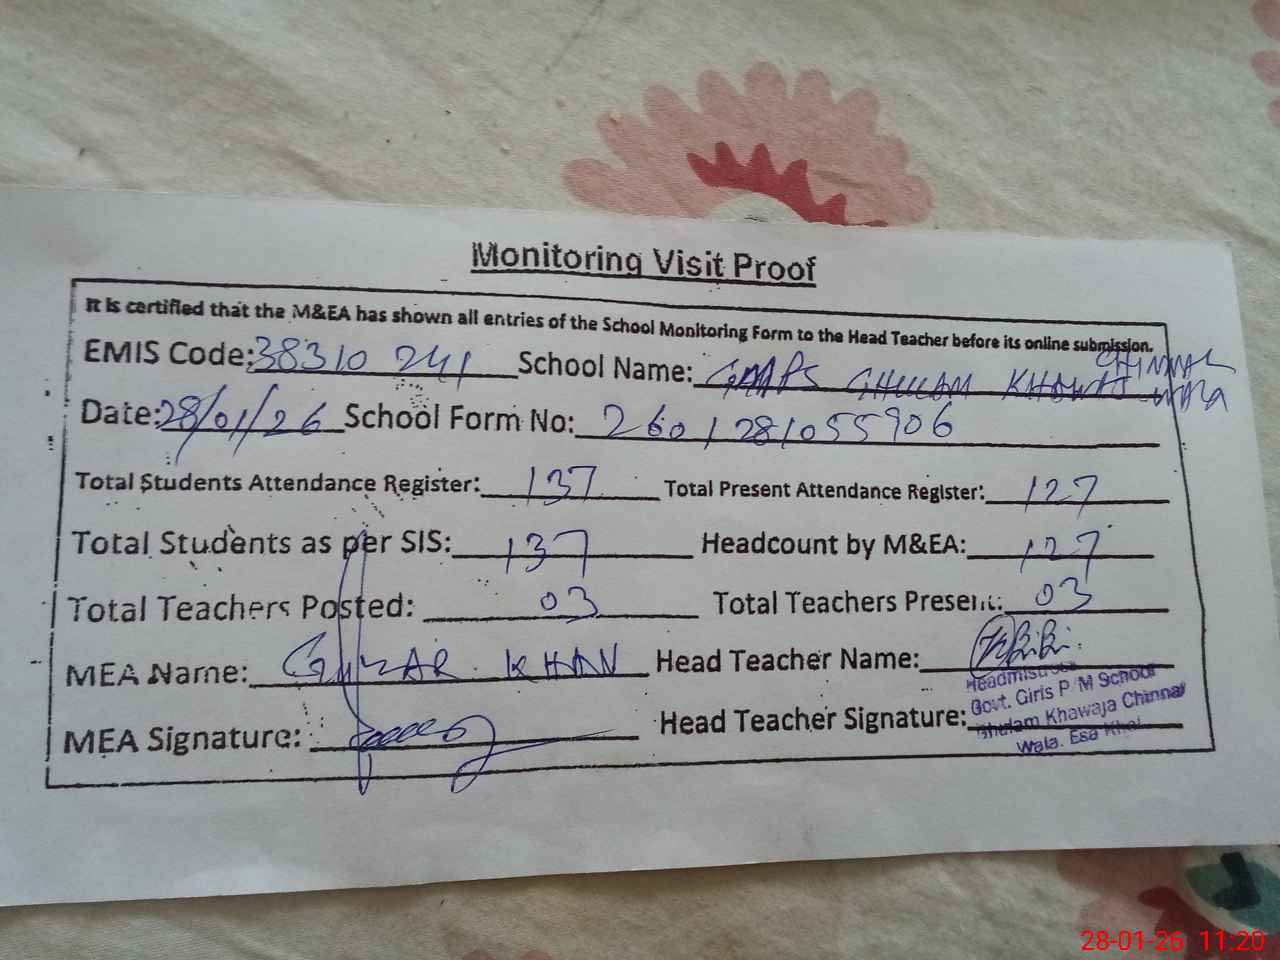 Monitoring Visit Proof
It is certified that the M&EA has shown all entries of the School Monitoring Form to the Head Teacher before its online submission.
EMIS Code: 38310 241 School Name: GHULAM KHAWAJ CHINNAL WALA
Date: 28/01/26 School Form No: 260128055906
Total Students Attendance Register: 137 Total Present Attendance Register: 127
Total Students as per SIS: 137 Headcount by M&EA: 127
Total Teachers Posted: 03 Total Teachers Present: 03
MEA Name: GULZAR KHAN Head Teacher Name:
MEA Signature: Head Teacher Signature:
Headmistress
Govt. Girls P/M School
Ghulam Khawaja Chinnal
Wala. Esa Khel
28-01-26 11:20